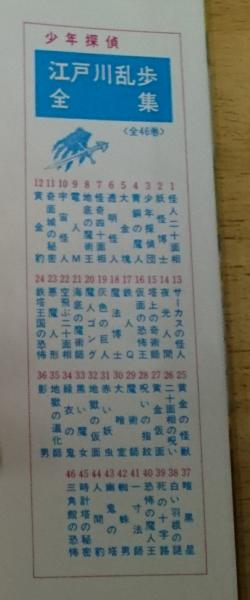 少年探偵
江戸川乱歩
全集
〈全46巻〉
1 怪人二十面相
2 妖怪博士
3 少年探偵団
4 青銅の魔人
5 大金塊
6 透明怪人
7 怪奇四十面相
8 地底の魔術王
9 電人M
10 宇宙怪人
11 奇面城の秘密
12 黄金豹
13 サーカスの怪人
14 夜光人間
15 塔上の奇術師
16 仮面の恐怖王
17 鉄人Q
18 魔法博士
19 灰色の巨人
20 魔人ゴング
21 海底の魔術師
22 空飛ぶ二十面相
23 悪魔人形
24 鉄塔王国の恐怖
25 黄金の怪獣
26 二十面相の呪い
27 黄金仮面
28 呪いの指紋
29 魔術師
30 大暗室
31 赤い妖虫
32 地獄の仮面
33 黒い魔女
34 緑衣の鬼
35 地獄の道化師
36 影男
37 暗黒星
38 白い羽根の謎
39 死の十字路
40 恐怖の魔人王
41 一寸法師
42 蜘蛛男
43 幽鬼の塔
44 人間豹
45 時計塔の秘密
46 三角館の恐怖